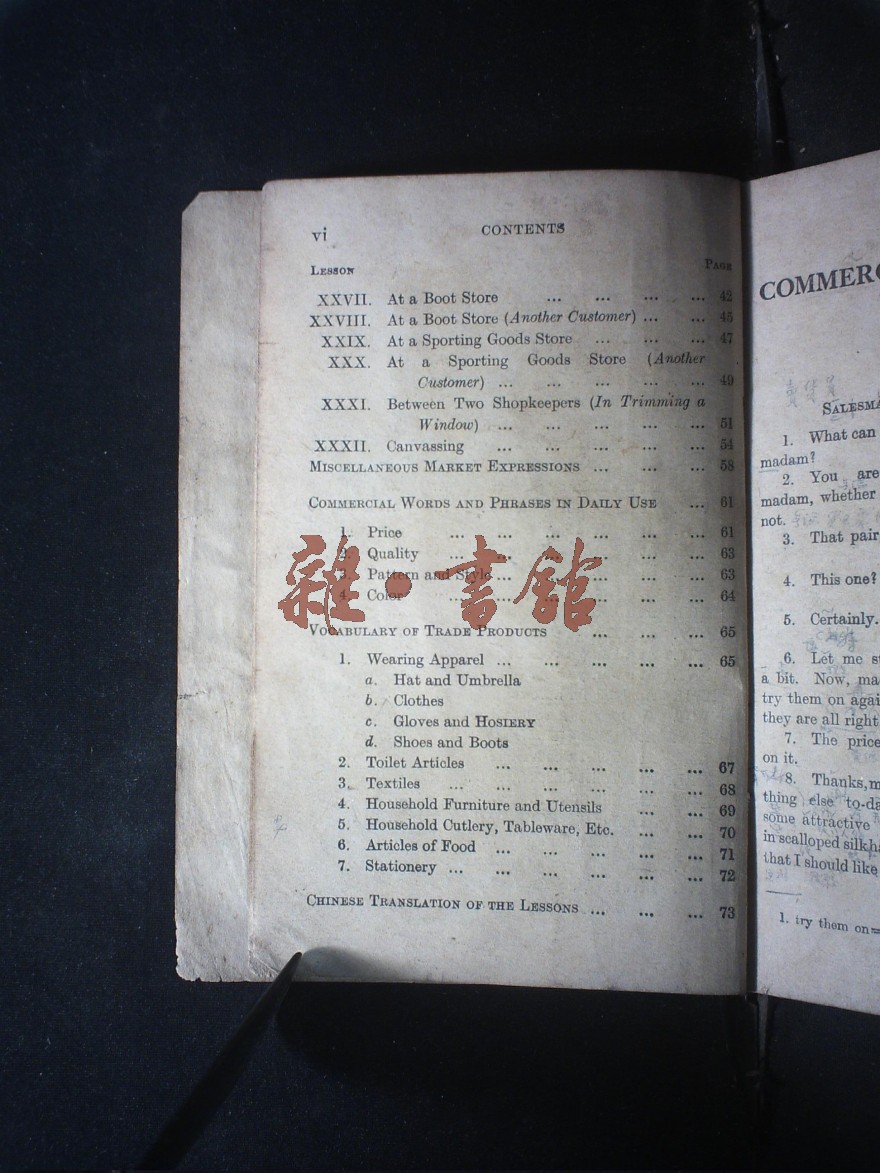 vi CONTENTS
LESSON PAGE
XXVII. At a Boot Store ... ... ... ... 42
XXVIII. At a Boot Store (Another Customer) ... ... 45
XXIX. At a Sporting Goods Store ... ... ... 47
XXX. At a Sporting Goods Store (Another
Customer) ... ... ... ... ... 49
XXXI. Between Two Shopkeepers (In Trimming a
Window) ... ... ... ... ... 51
XXXII. Canvassing ... ... ... ... ... 54
MISCELLANEOUS MARKET EXPRESSIONS ... ... ... 58
COMMERCIAL WORDS AND PHRASES IN DAILY USE ... 61
1. Price ... ... ... ... ... ... 61
2. Quality ... ... ... ... ... ... 63
3. Pattern and Style ... ... ... ... ... 63
4. Color ... ... ... ... ... ... 64
VOCABULARY OF TRADE PRODUCTS ... ... ... 65
1. Wearing Apparel ... ... ... ... ... 65
a. Hat and Umbrella
b. Clothes
c. Gloves and HOSIERY
d. Shoes and Boots
2. Toilet Articles ... ... ... ... ... 67
3. Textiles ... ... ... ... ... ... 68
4. Household Furniture and Utensils ... ... 69
5. Household Cutlery, Tableware, Etc. ... ... 70
6. Articles of Food ... ... ... ... ... 71
7. Stationery ... ... ... ... ... ... 72
CHINESE TRANSLATION OF THE LESSONS ... ... ... 73
雜·書館
COMMERC
SALESMA
1. What can
madam?
2. You are
madam, whether
not.
3. That pair
4. This one?
5. Certainly.
6. Let me st
a bit. Now, ma
try them on agai
they are all right
7. The price
on it.
8. Thanks, m
thing else to-da
some attractive
in scalloped silk h
that I should like
1. try them on=